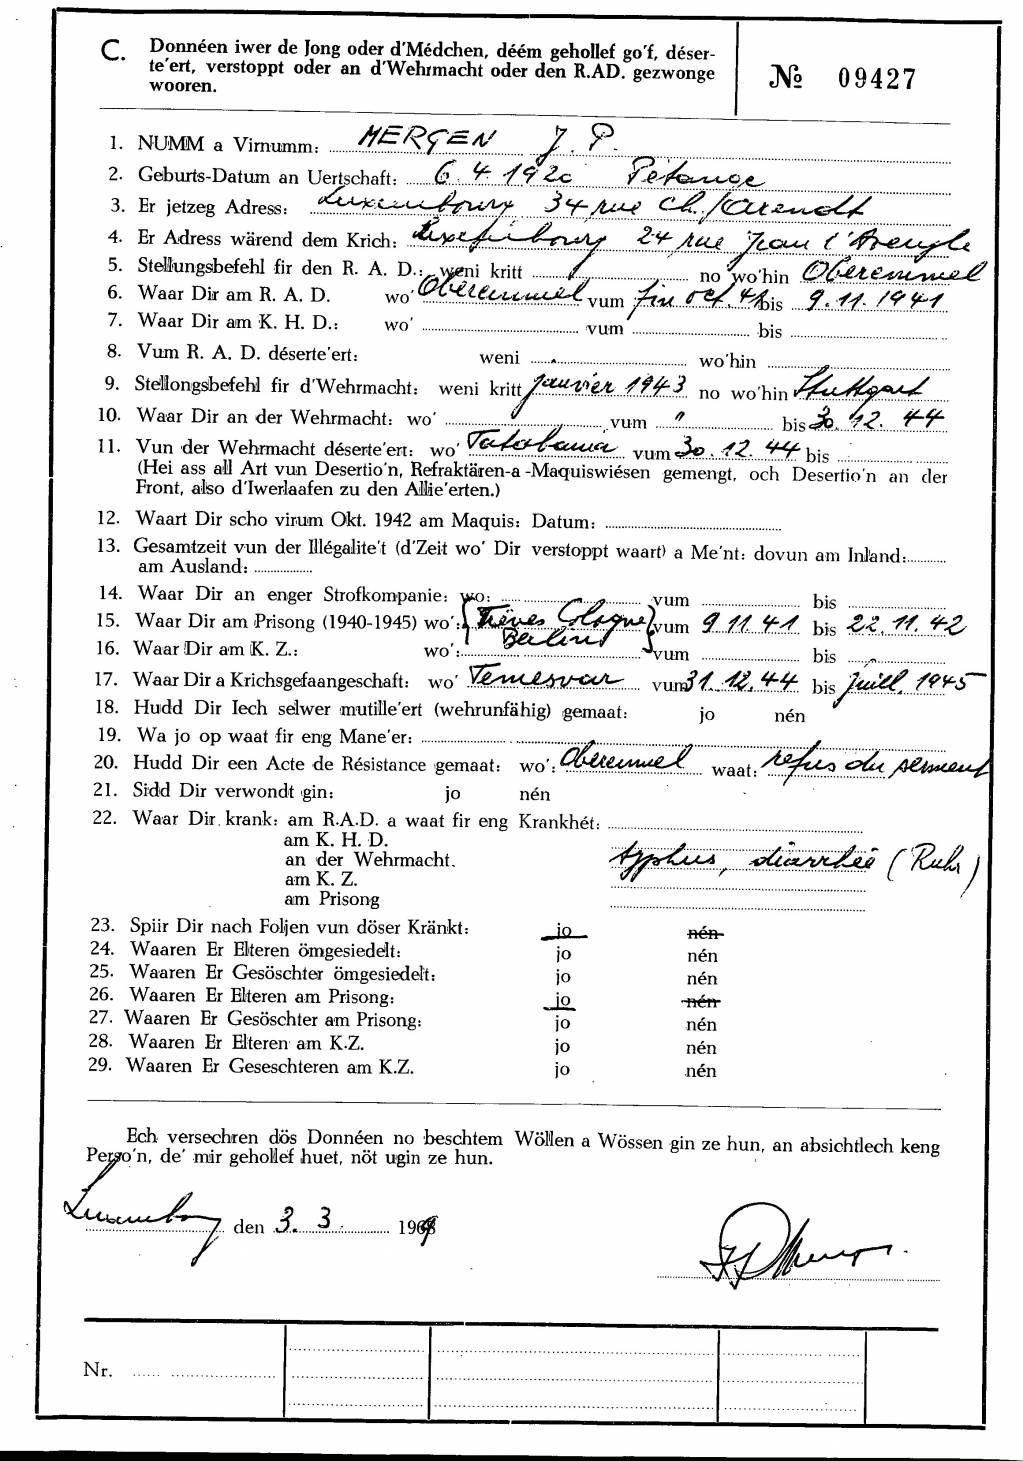 C. Donnéen iwer de Jong oder d'Médchen, déém gehollef go'f, déser-
te'ert, verstoppt oder an d'Wehrmacht oder den R.AD. gezwonge
wooren.
№ 09427
1. NUMM a Virnumm: MERGEN J. P.
2. Geburts-Datum an Uertschaft: 6. 4. 1920 Pétange
3. Er jetzeg Adress: Luxembourg 34, rue Ch. Arendt
4. Er Adress wärend dem Krich: Luxembourg 24 rue Jean l'Aveugle
5. Stellungsbefehl fir den R. A. D.: weni kritt no wo'hin Oberemmel
6. Waar Dir am R. A. D. wo' Oberemmel vum fin oct. 41 bis 9.11.1941
7. Waar Dir am K. H. D.: wo' vum bis
8. Vum R. A. D. déserte'ert: weni wo'hin
9. Stellongsbefehl fir d'Wehrmacht: weni kritt Janvier 1943 no wo'hin Stuttgart
10. Waar Dir an der Wehrmacht: wo' vum " bis 30. 12. 44
11. Vun der Wehrmacht déserte'ert: wo' Tatabana vum 30. 12. 44 bis
(Hei ass all Art vun Desertio'n, Refraktären-a -Maquiswiésen gemengt, och Desertio'n an der
Front, also d'Iwerlaafen zu den Allie'erten.)
12. Waart Dir scho virum Okt. 1942 am Maquis: Datum:
13. Gesamtzeit vun der Illégalite't (d'Zeit wo' Dir verstoppt waart) a Me'nt: dovun am Inland:
am Ausland:
14. Waar Dir an enger Strofkompanie: wo: vum bis
15. Waar Dir am Prisong (1940-1945) wo': { Trèves Cologne } vum 9. 11. 41 bis 22. 11. 42
Berlin
16. Waar Dir am K. Z.: wo': vum bis
17. Waar Dir a Krichsgefaangeschaft: wo' Temesvar vum 31. 12. 44 bis juill. 1945
18. Hudd Dir Iech selwer mutille'ert (wehrunfähig) gemaat: jo nén
19. Wa jo op waat fir eng Mane'er:
20. Hudd Dir een Acte de Résistance gemaat: wo': Oberemmel waat: refus du serment
21. Sidd Dir verwondt gin: jo nén
22. Waar Dir krank: am R.A.D. a waat fir eng Krankhét:
am K. H. D.
an der Wehrmacht. typhus, diarrhée (Ruhr)
am K. Z.
am Prisong
23. Spiir Dir nach Foljen vun döser Kränkt: jo nén
24. Waaren Er Elteren ömgesiedelt: jo nén
25. Waaren Er Gesöschter ömgesiedelt: jo nén
26. Waaren Er Elteren am Prisong: jo nén
27. Waaren Er Gesöschter am Prisong: jo nén
28. Waaren Er Elteren am K.Z. jo nén
29. Waaren Er Geseschteren am K.Z. jo nén
Ech versechren dös Donnéen no beschtem Wöllen a Wössen gin ze hun, an absichtlech keng
Perso'n, de' mir gehollef huet, nöt ugin ze hun.
Luxembourg den 3. 3. 196
Nr.